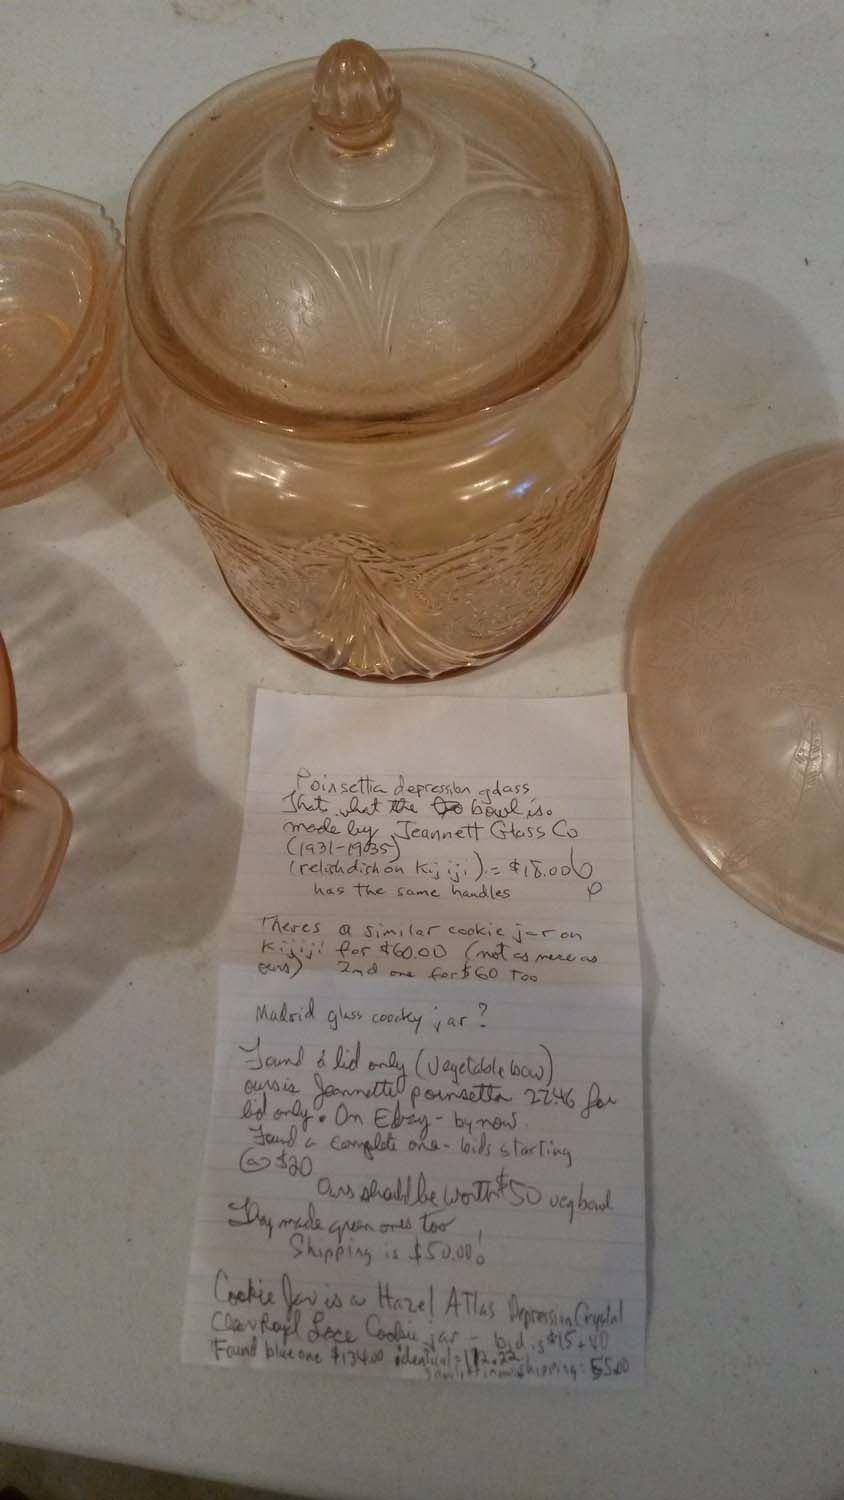 Poinsettia depression glass
That's what the bowl is.
made by Jeannett Glass Co
(1931-1935)
(relish dish on Kijiji) = $18.00
has the same handles
Theres a similar cookie jar on
Kijiji for $60.00 (not as nice as
ours) 2nd one for $60 too
Madrid glass coocky jar?
Found a lid only (Vegetable bowl)
ours is Jeannette poinsetta 22.46 for
lid only. On Ebay - by now.
Found a complete one - bids starting
@ $20
Ours should be worth $50 veg bowl
They made green ones too
Shipping is $50.00!
Cookie Jar is a Hazel Atlas Depression Crystal
Clear Royl Lace Cookie jar - bid is $15 + 40
Found blue one $134.00 identical = 112.22
shipping: 55.00